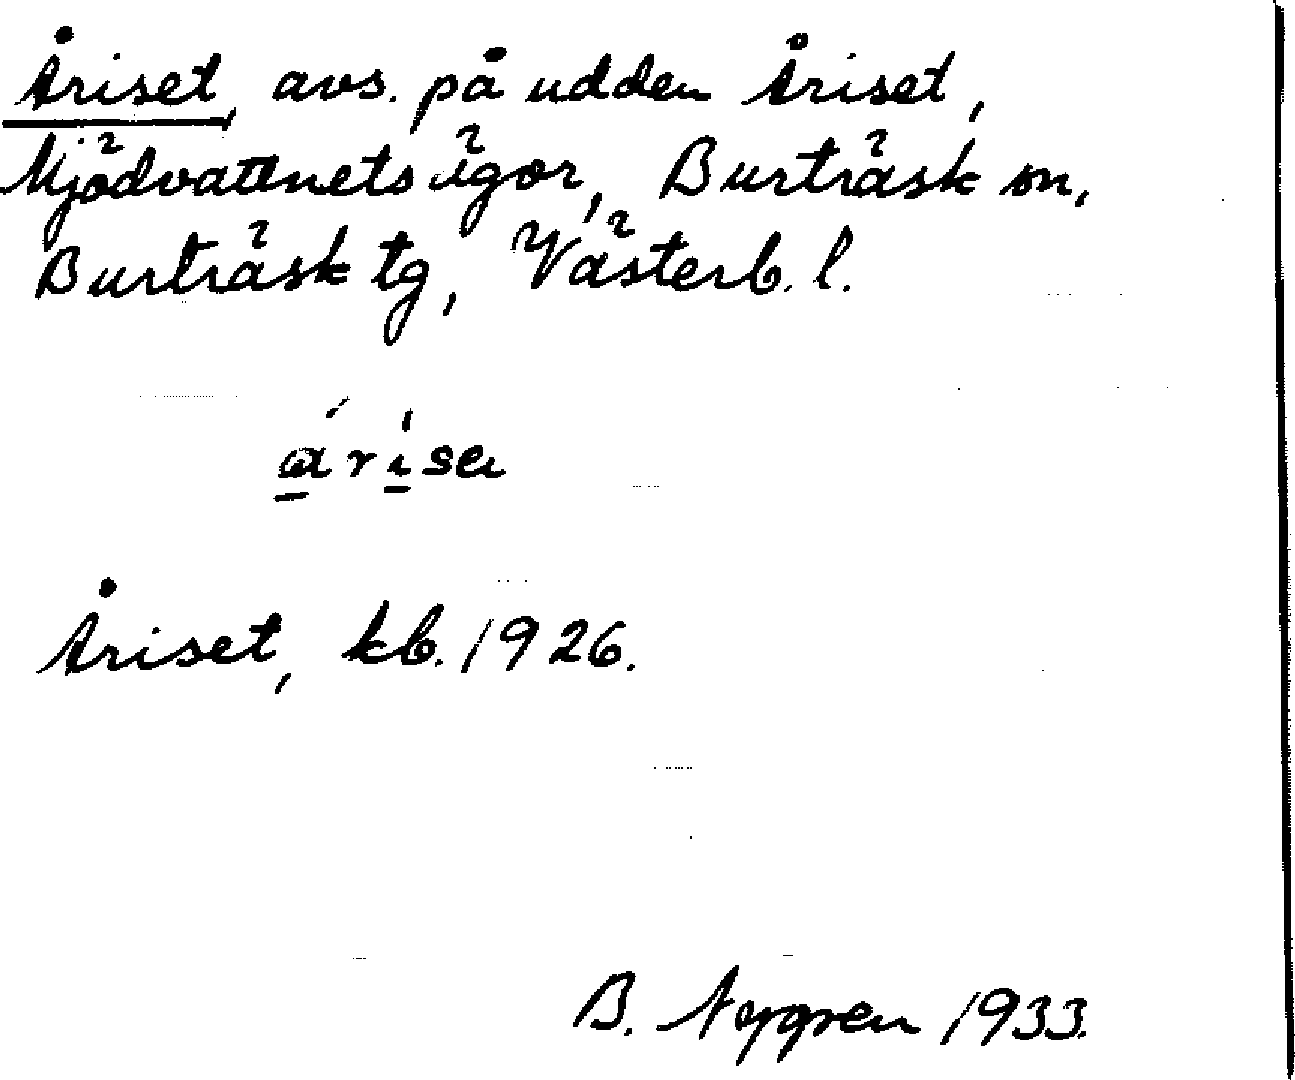 Åriset, avs. på udden Åriset,
Mjödvattnets ägor, Burträsk sn,
Burträsk tg, Västerb. l.
Åriset, kb. 1926.
B. Nygren 1933.